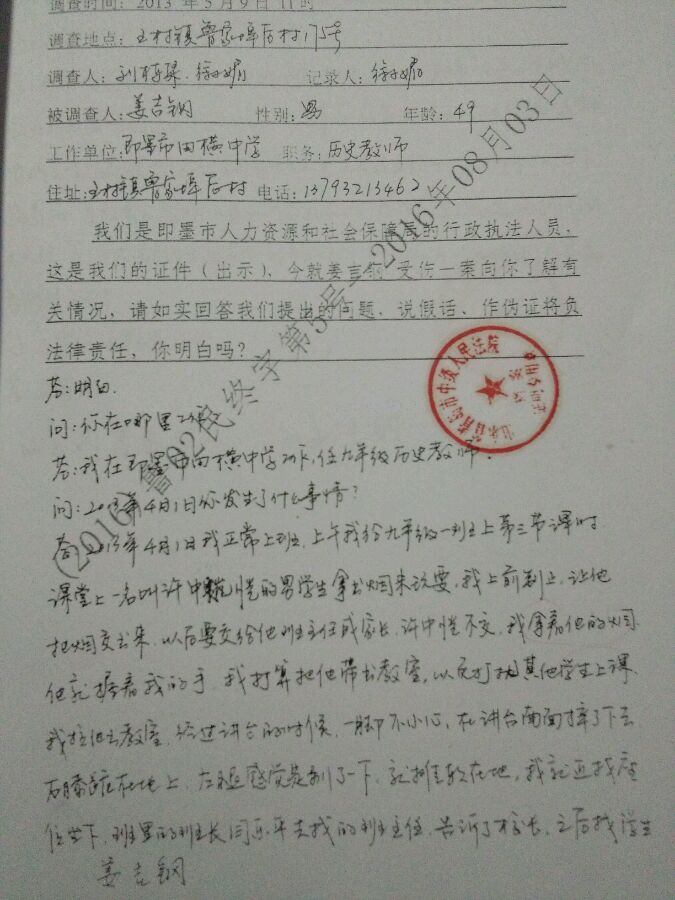 调查时间：2013 年 5 月 9 日 11 时
调查地点：王村镇鲁家埠后村175号
调查人：刘 徐 记录人：徐
被调查人：姜吉钢 性别：男 年龄：49
工作单位：即墨市田横中学 职务：历史教师
住址：王村镇鲁家埠后村 电话：13793213462
我们是即墨市人力资源和社会保障局的行政执法人员，
这是我们的证件（出示），今就姜吉钢 受伤一案向你了解有
关情况，请如实回答我们提出的问题，说假话、作伪证将负
法律责任，你明白吗？
答：明白.
问：你在哪里工作？
答：我在即墨市田横中学工作，任九年级历史教师.
问：2013年4月1日你发生了什么事情？
答：2013年4月1日我正常上班，上午我给九年级一班上第三节课时，
课堂上一名叫许中恺的男学生拿出烟来玩耍，我上前制止，让他
把烟交出来，以后要交给他班主任或家长，许中恺不交，我拿着他的烟，
他就握着我的手，我打算把他带出教室，以免打扰其他学生上课.
我拉他出教室，经过讲台的时候，一脚不小心，在讲台南面摔了下去
右膝跪在地上，左腿感觉是别了一下，就摊软在地，我就近找座
位坐下，班里的班长闫乐平去找的班主任，告诉了校长，之后找学生
姜吉钢
(2016)鲁02民终字第5号 2016年08月03日
山东省青岛市中级人民法院